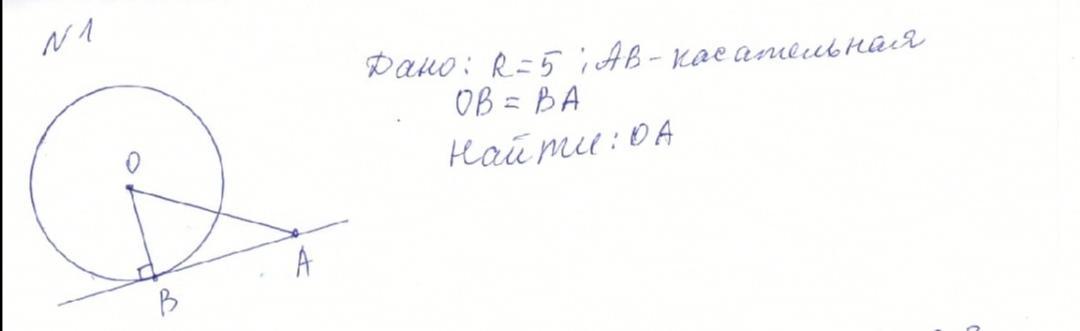 N 1
Дано: R = 5 ; AB - касательная
OB = BA
Найти: OA
O
A
B